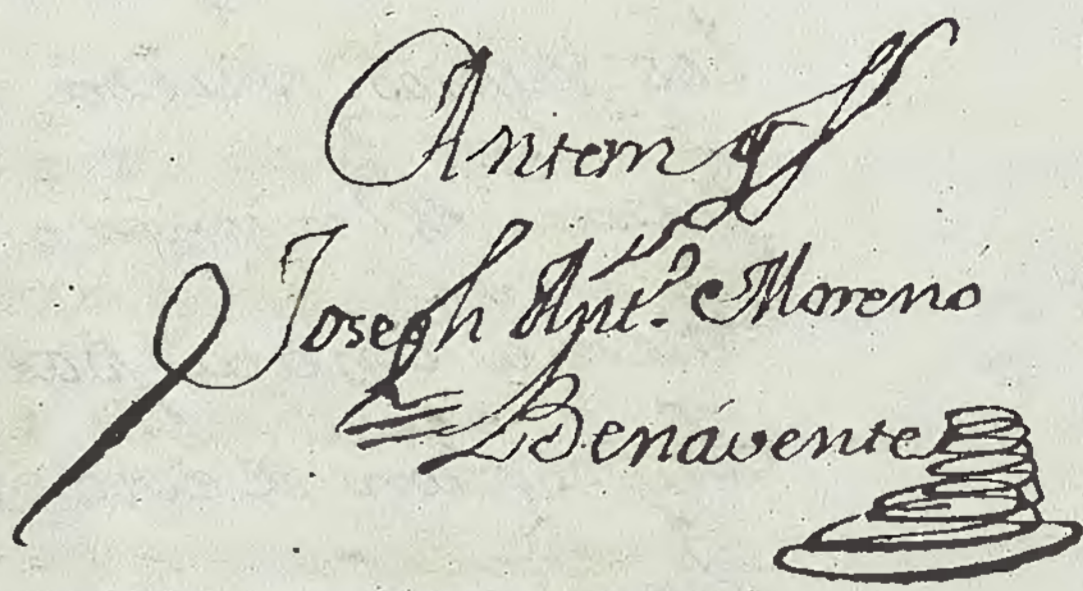 Antem y
Joseph Ant.º Moreno
Benávente